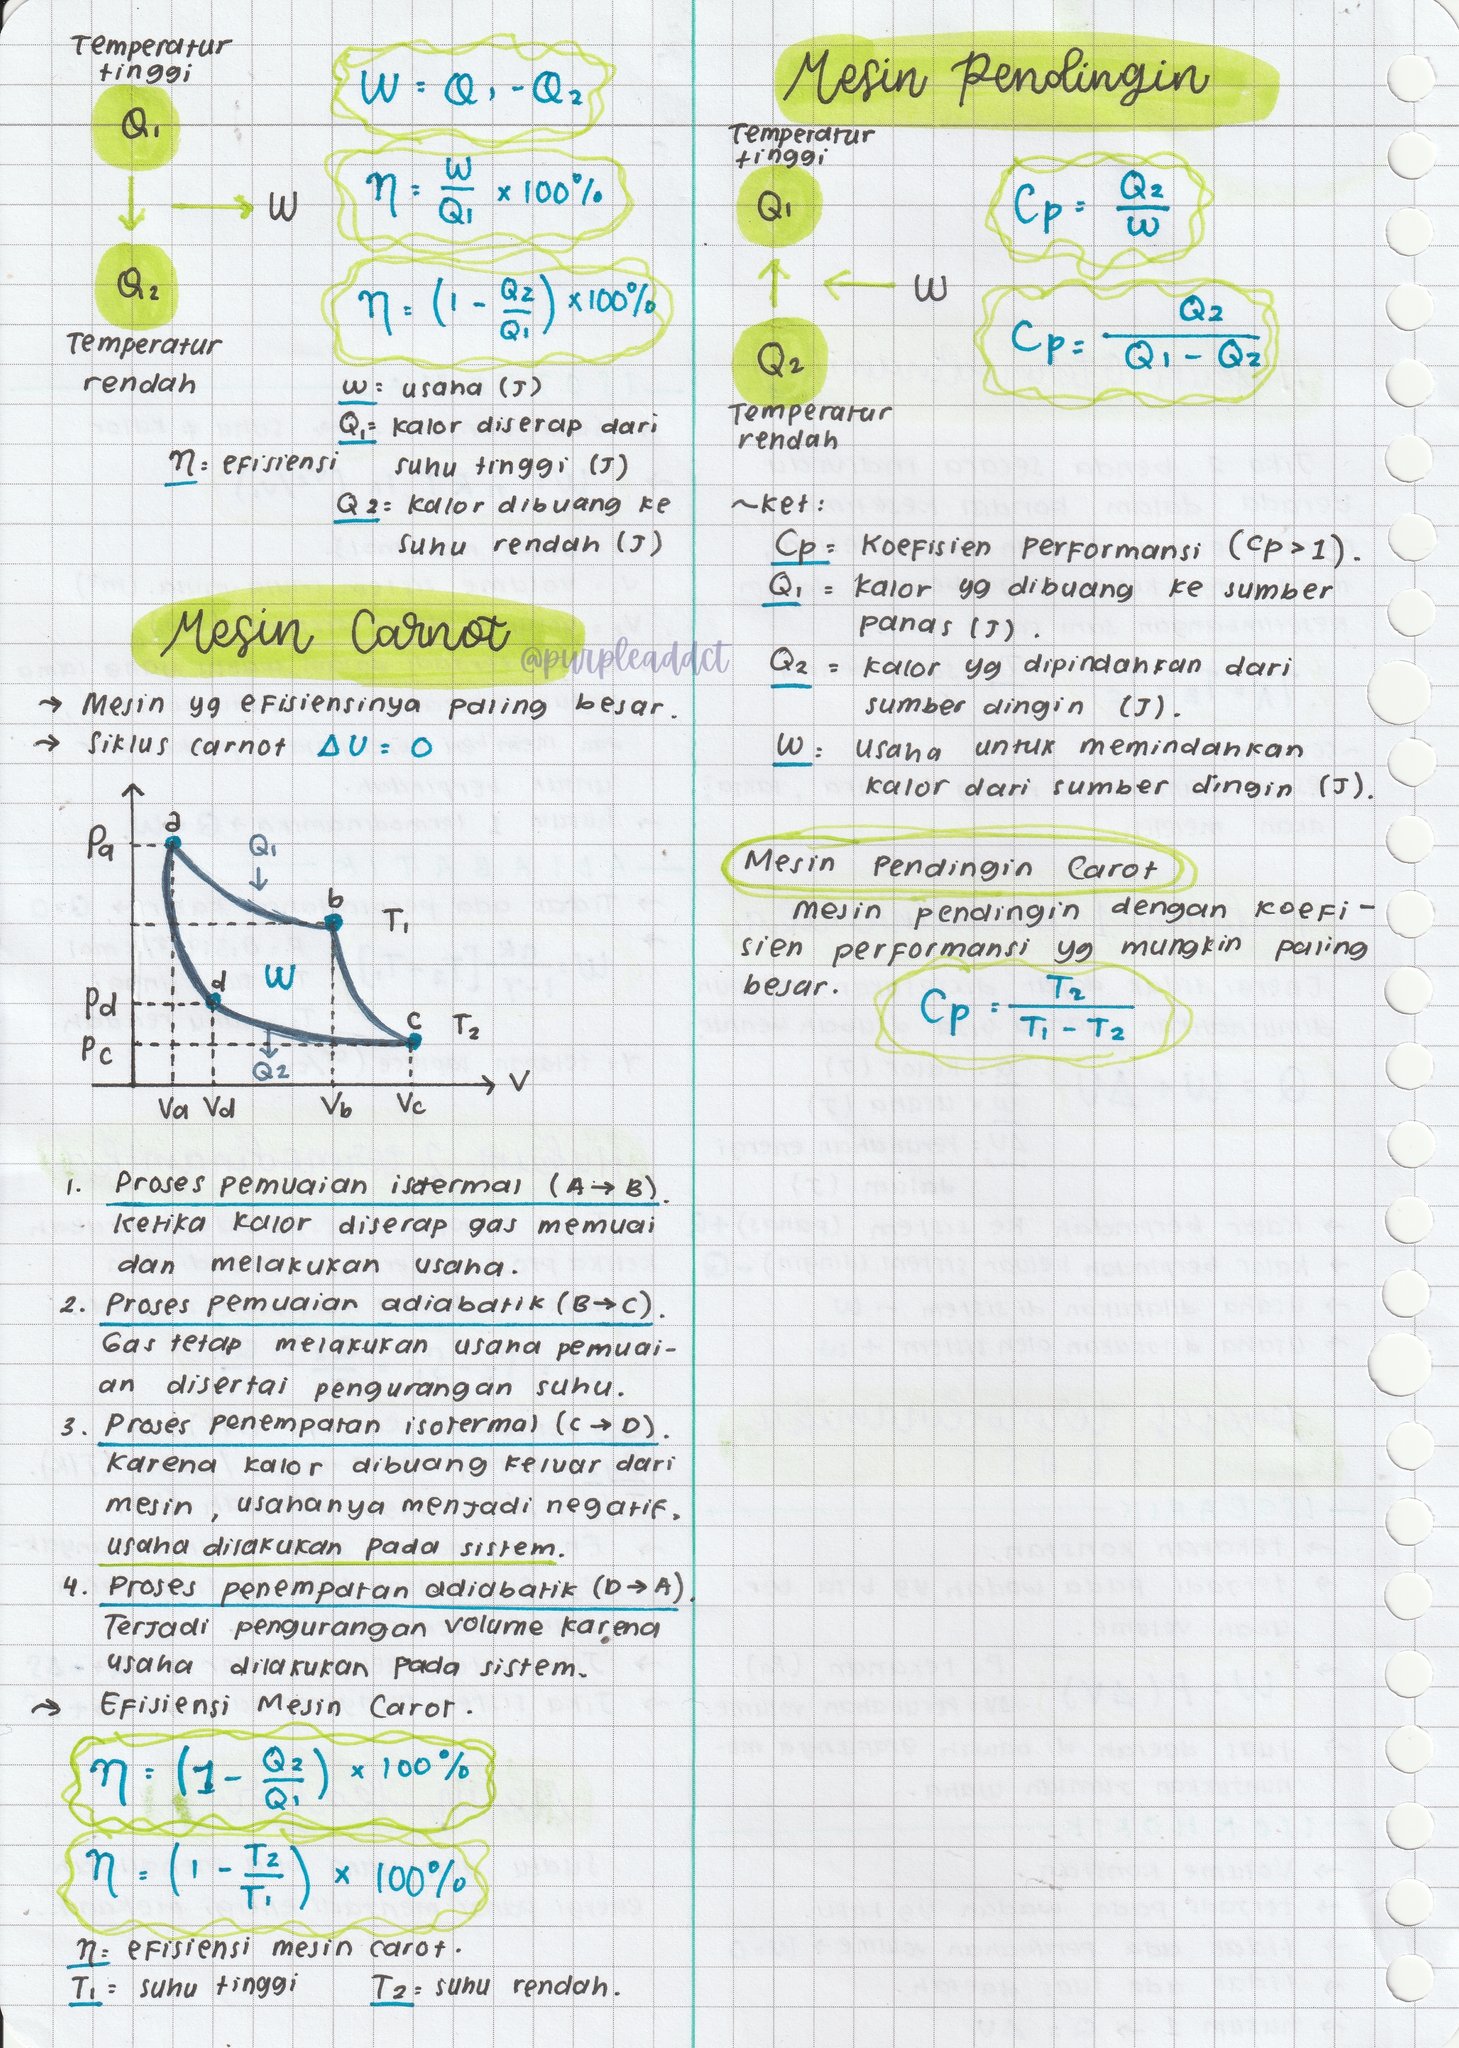 Temperatur
tinggi
Q1
W
Q2
Temperatur
rendah
W = Q1 - Q2
η = W/Q1 × 100%
η = (1 - Q2/Q1) × 100%
W = usaha (J)
Q1 = kalor diserap dari
suhu tinggi (J)
η = efisiensi
Q2 = kalor dibuang ke
suhu rendah (J)
Mesin Carnot
@purpleaddct
→ Mesin yg efisiensinya paling besar.
→ Siklus carnot ΔU = 0
a
Pa
Q1
b
T1
W
d
Pd
c
T2
Pc
Q2
V
Va Vd Vb Vc
1. Proses pemuaian isotermal (A → B).
Ketika kalor diserap gas memuai
dan melakukan usaha.
2. Proses pemuaian adiabatik (B → C).
Gas tetap melakukan usaha pemuai-
an disertai pengurangan suhu.
3. Proses penempatan isotermal (C → D).
Karena kalor dibuang keluar dari
mesin, usahanya menjadi negatif.
usaha dilakukan pada sistem.
4. Proses penempatan adiabatik (D → A).
Terjadi pengurangan volume karena
usaha dilakukan pada sistem.
→ Efisiensi Mesin Carot.
η = (1 - Q2/Q1) × 100%
η = (1 - T2/T1) × 100%
η = efisiensi mesin carot.
T1 = suhu tinggi T2 = suhu rendah.
Mesin Pendingin
Temperatur
tinggi
Q1
W
Q2
Temperatur
rendah
Cp = Q2/W
Cp = Q2/(Q1 - Q2)
~Ket:
Cp = Koefisien performansi (Cp > 1).
Q1 = kalor yg dibuang ke sumber
panas (J).
Q2 = kalor yg dipindahkan dari
sumber dingin (J).
W = usaha untuk memindahkan
kalor dari sumber dingin (J).
Mesin Pendingin Carot
Mesin pendingin dengan koefi-
sien performansi yg mungkin paling
besar.
Cp = T2/(T1 - T2)